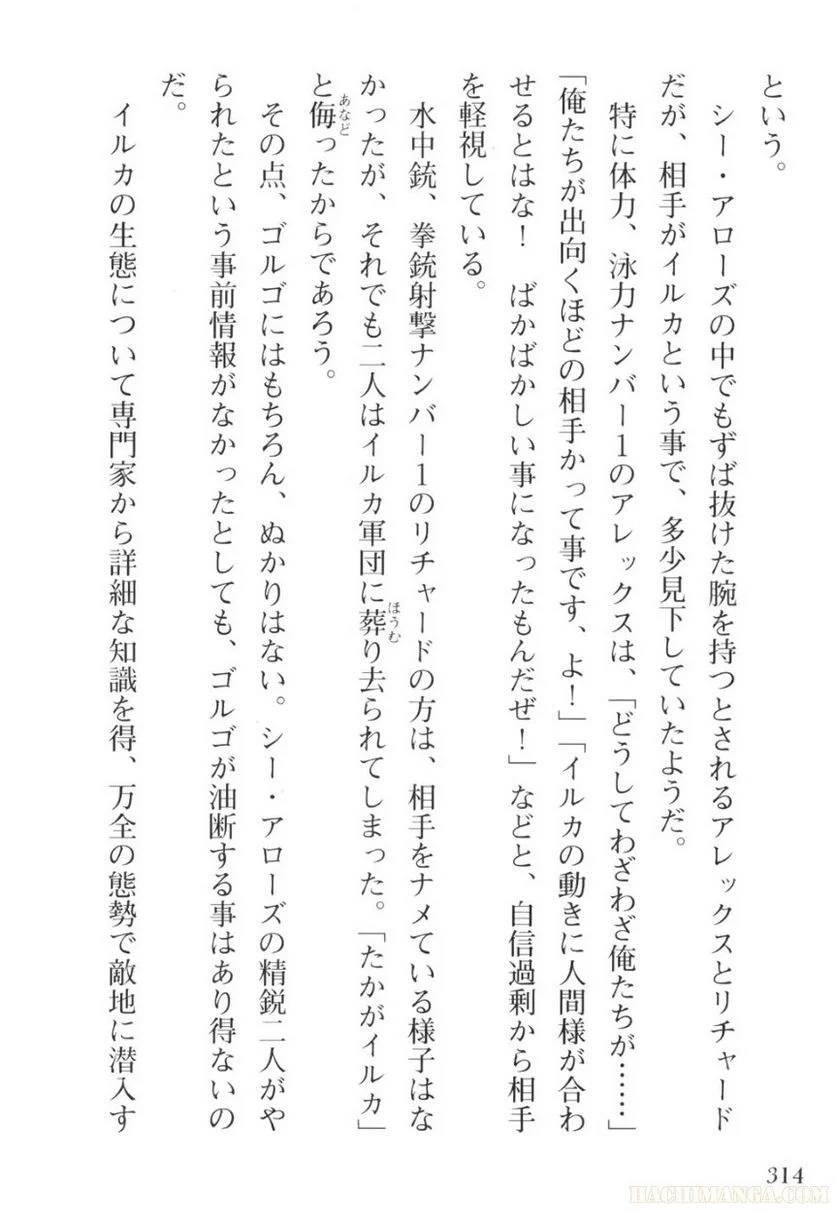 という。
　シー・アローズの中でもずば抜けた腕を持つとされるアレックスとリチャード
だが、相手がイルカという事で、多少見下していたようだ。
　特に体力、泳力ナンバー1のアレックスは、「どうしてわざわざ俺たちが……」
「俺たちが出向くほどの相手かって事です、よ！」「イルカの動きに人間様が合わ
せるとはな！　ばかばかしい事になったもんだぜ！」などと、自信過剰から相手
を軽視している。
　水中銃、拳銃射撃ナンバー1のリチャードの方は、相手をナメている様子はな
かったが、それでも二人はイルカ軍団に葬り去られてしまった。「たかがイルカ」
ほうむ
と侮ったからであろう。
あなど
　その点、ゴルゴにはもちろん、ぬかりはない。シー・アローズの精鋭二人がや
られたという事前情報がなかったとしても、ゴルゴが油断する事はあり得ないの
だ。
　イルカの生態について専門家から詳細な知識を得、万全の態勢で敵地に潜入す
314
HACHIMANGA.COM